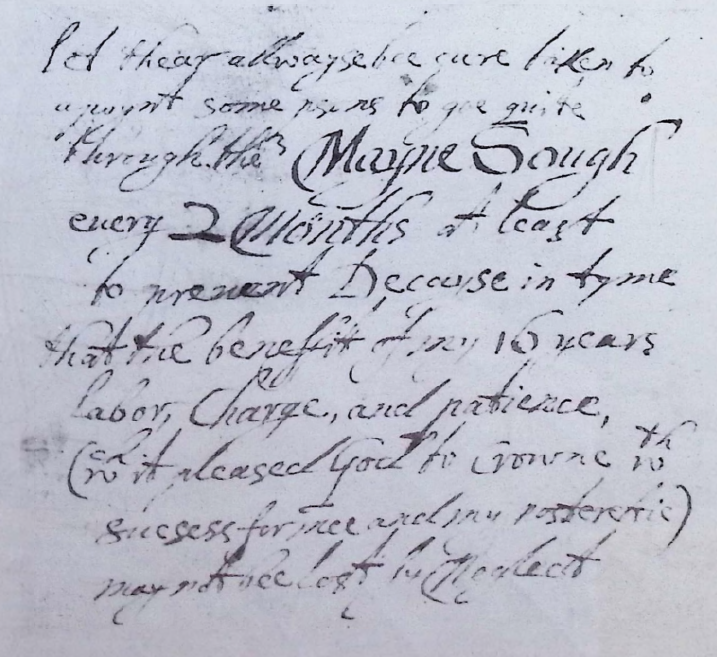 let theay allwayse bee care taken to
apoynt some psons to goe quite
through the Mayne Sough
euery 2 Months at least
to preuent Decayse in tyme
that the benefitt of my 16 years
labor, Charge, and patience,
(wch it pleased God to Crowne wth
sucsess for mee and my posteretie)
may not bee lost by Neglect